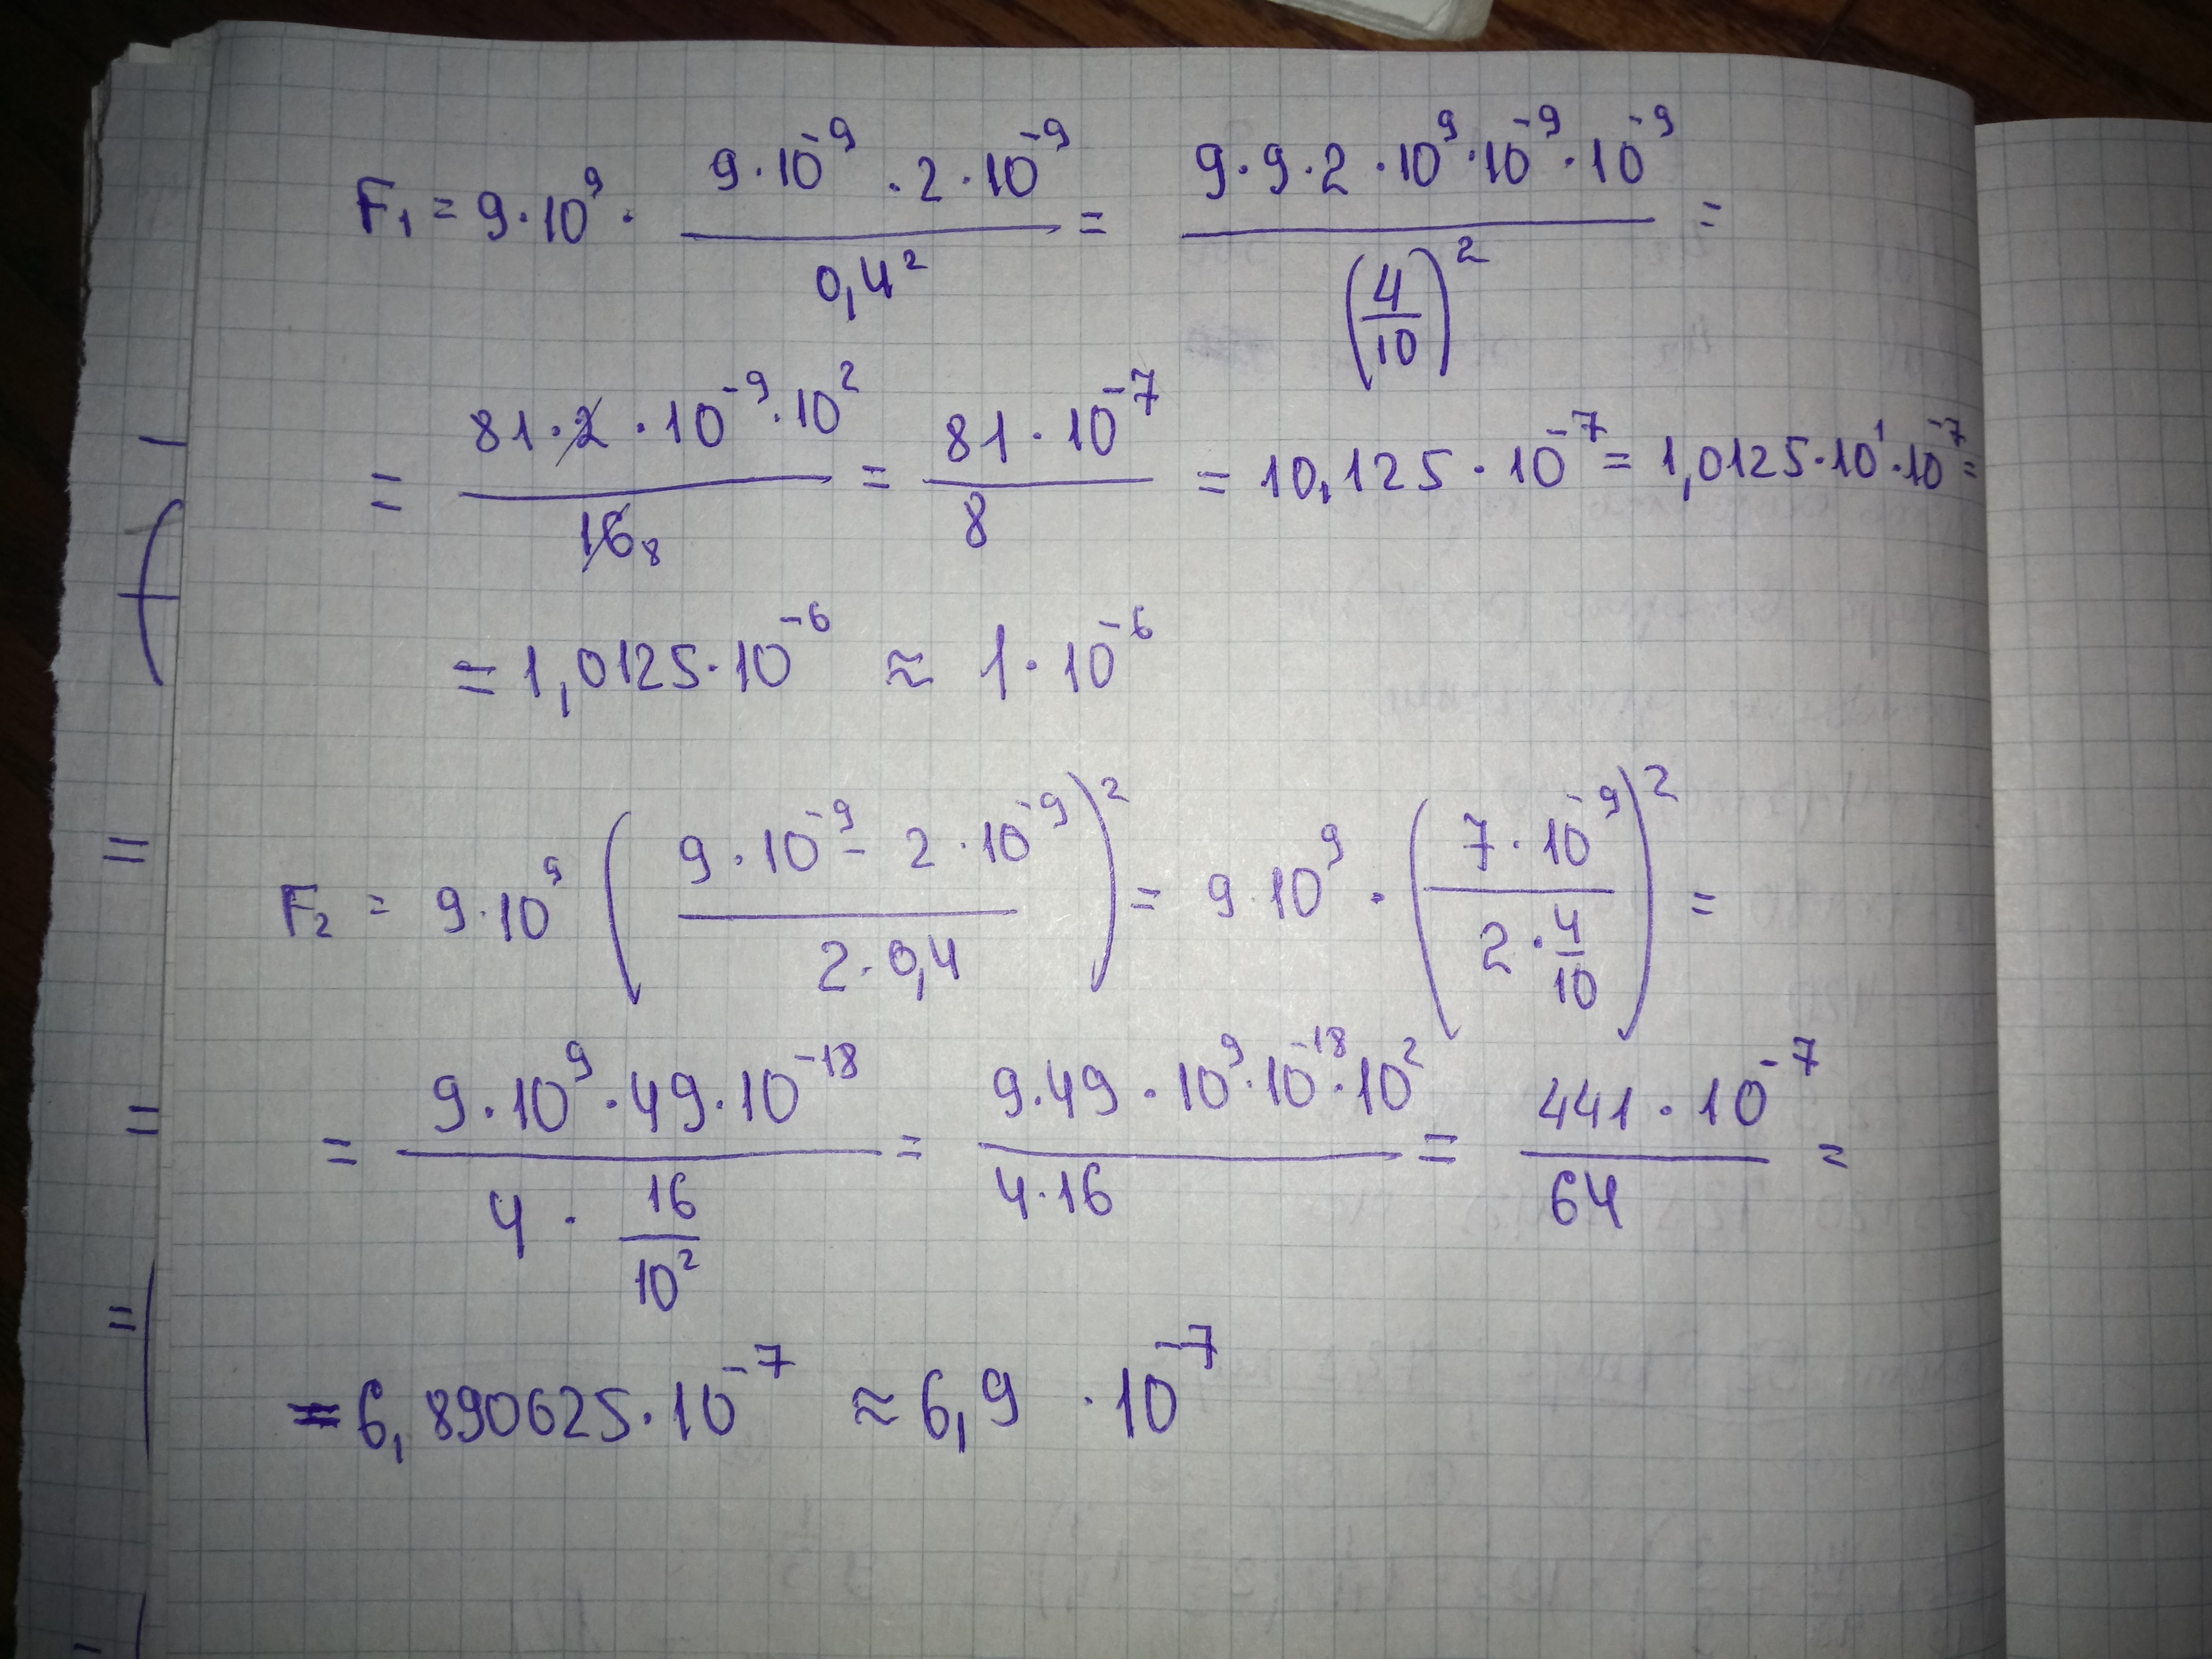 F₁ = 9·10⁹ · (9·10⁻⁹ · 2·10⁻⁹)/(0,4²) = (9·9·2·10⁹·10⁻⁹·10⁻⁹)/((4/10)²) =
= (81·2·10⁻⁹·10²)/(16 8) = (81·10⁻⁷)/8 = 10,125·10⁻⁷ = 1,0125·10¹·10⁻⁷ =
= 1,0125·10⁻⁶ ≈ 1·10⁻⁶
F₂ = 9·10⁹ ((9·10⁻⁹ - 2·10⁻⁹)/(2·0,4))² = 9·10⁹ · ((7·10⁻⁹)/(2·4/10))² =
= (9·10⁹·49·10⁻¹⁸)/(4·16/10²) = (9·49·10⁹·10⁻¹⁸·10²)/(4·16) = (441·10⁻⁷)/64 =
= 6,890625·10⁻⁷ ≈ 6,9 ·10⁻⁷